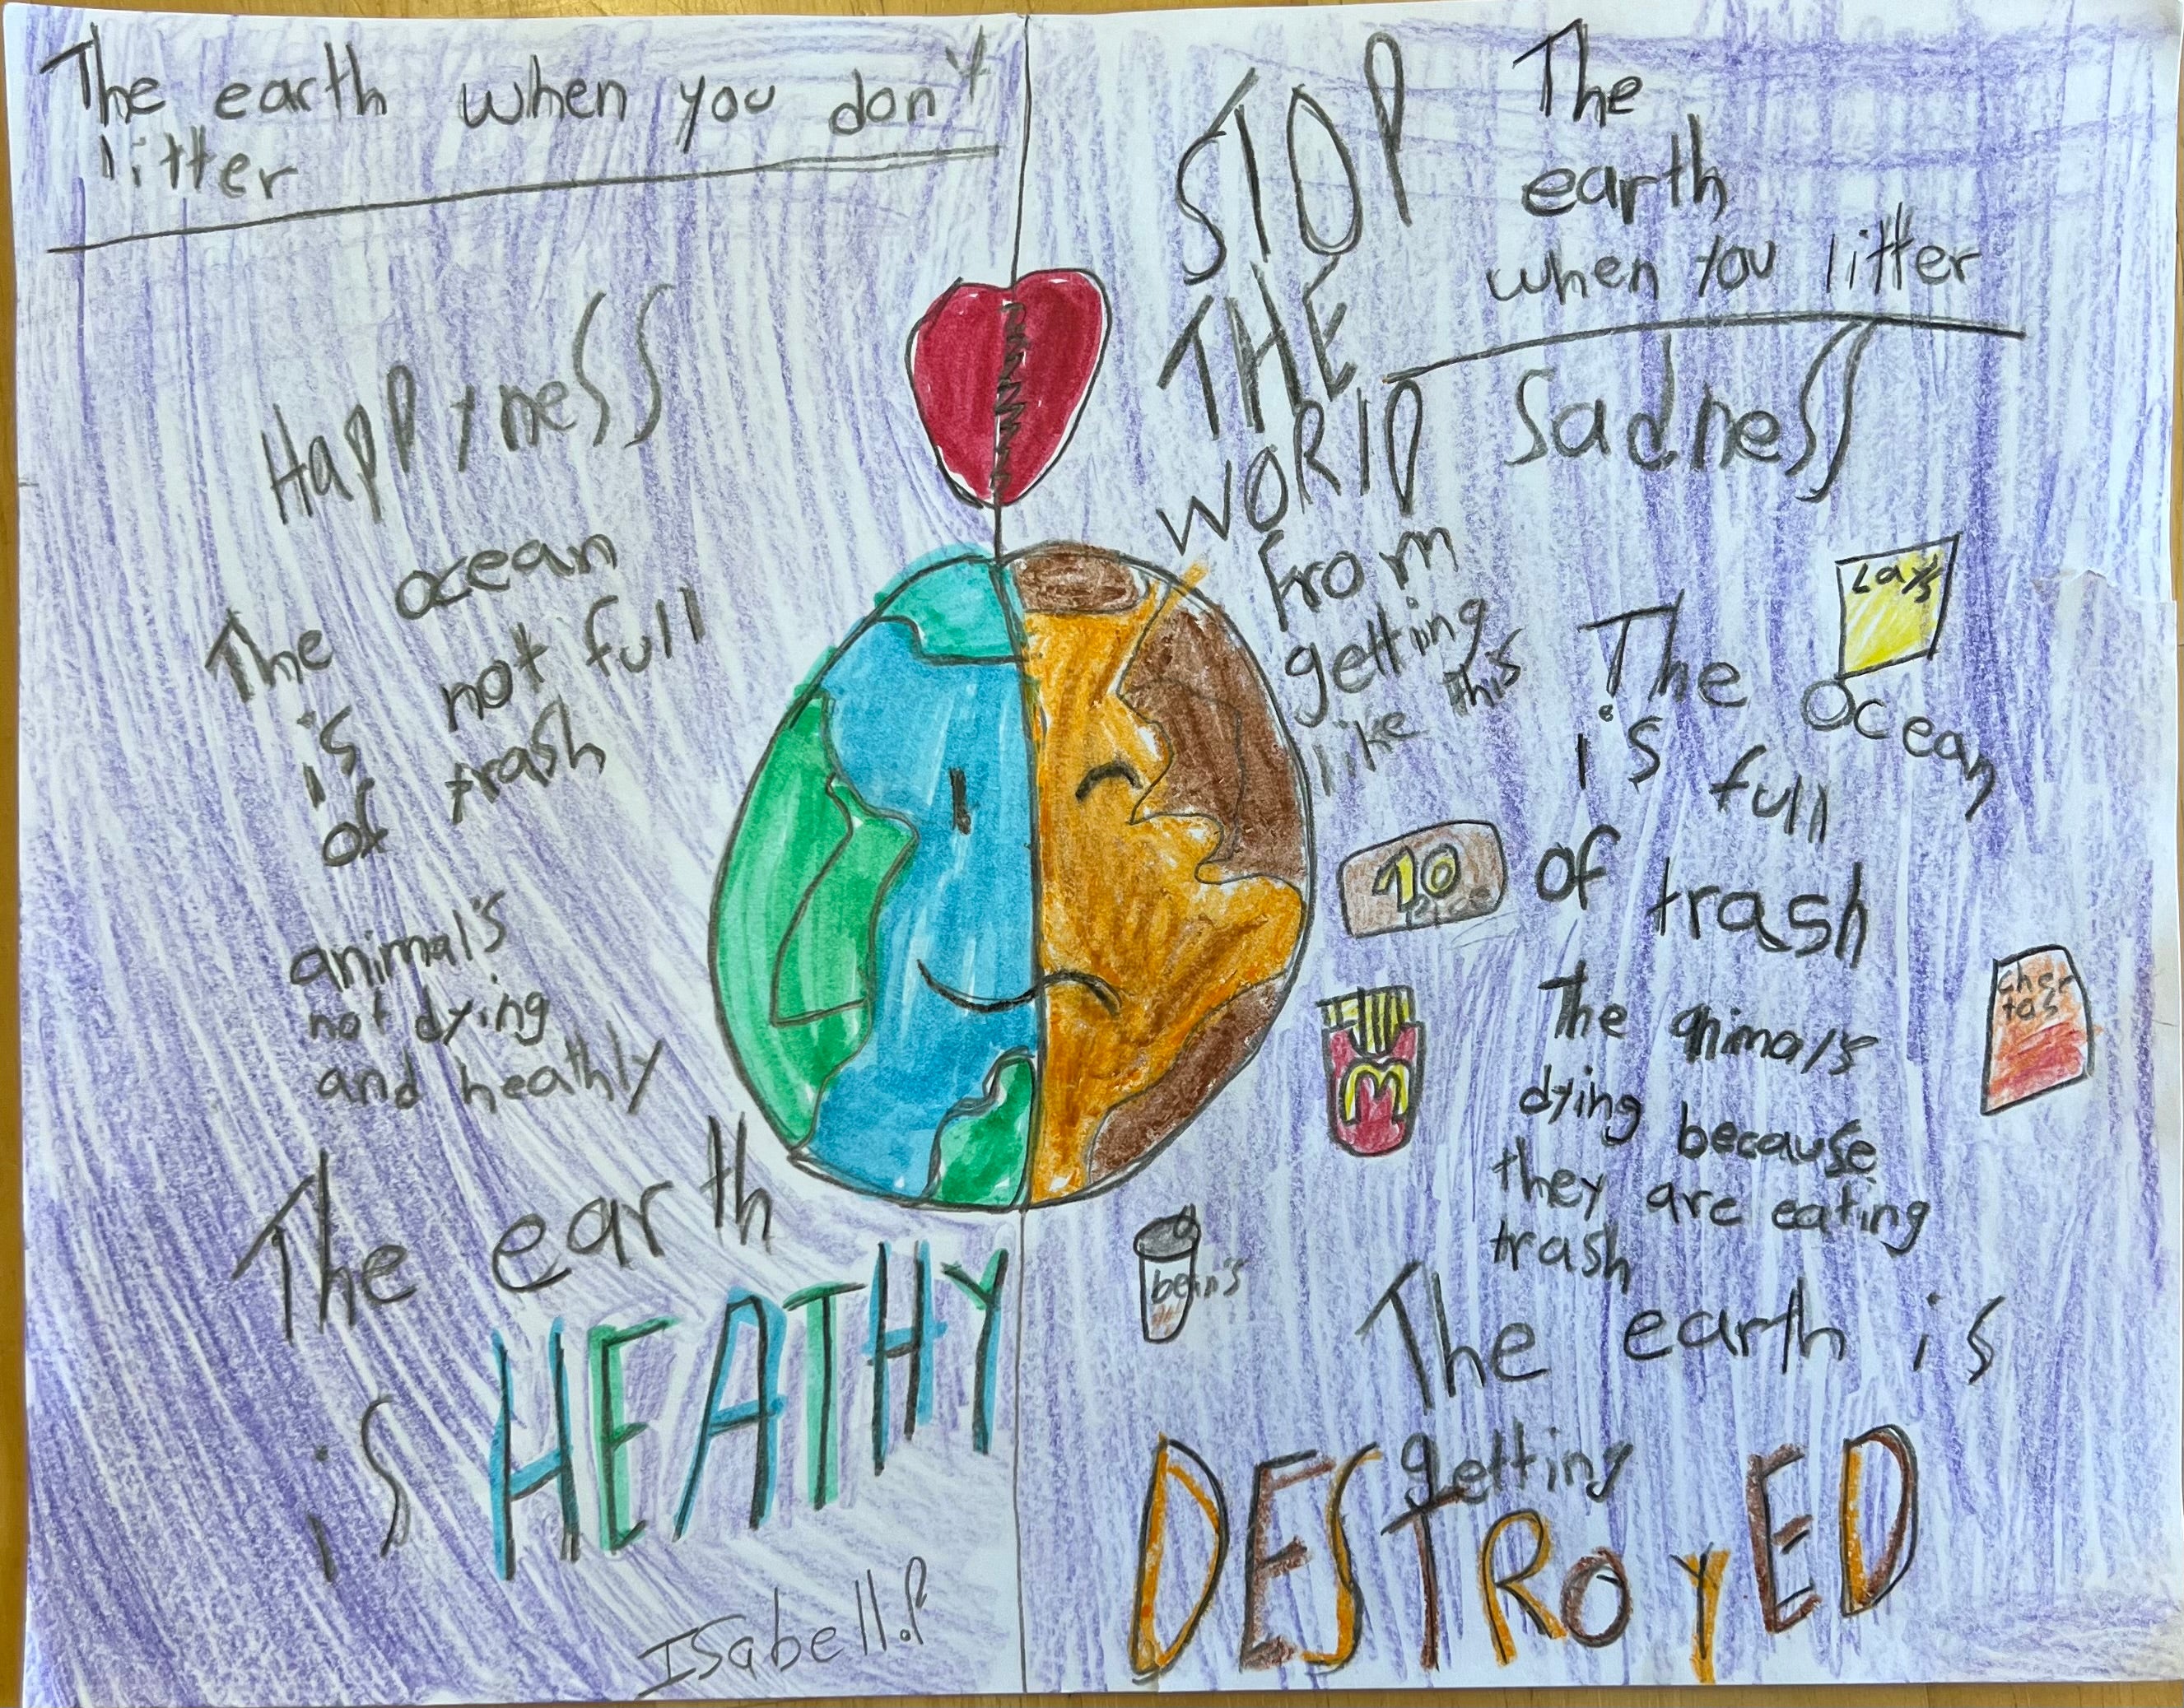 The earth when you don't
litter
Happyness
The ocean
is not full
of trash
animal's
not dying
and heathly
The earth
is HEATHY
Isabell.P
STOP
THE
WORlD
from
gettiing
like this
The
earth
when you litter
Sadness
Lay's
The ocean
is full
of trash
10
piece
M
cher
tas
The animal's
dying because
they are eating
trash
bean's
The earth is
getting
DESTROYED